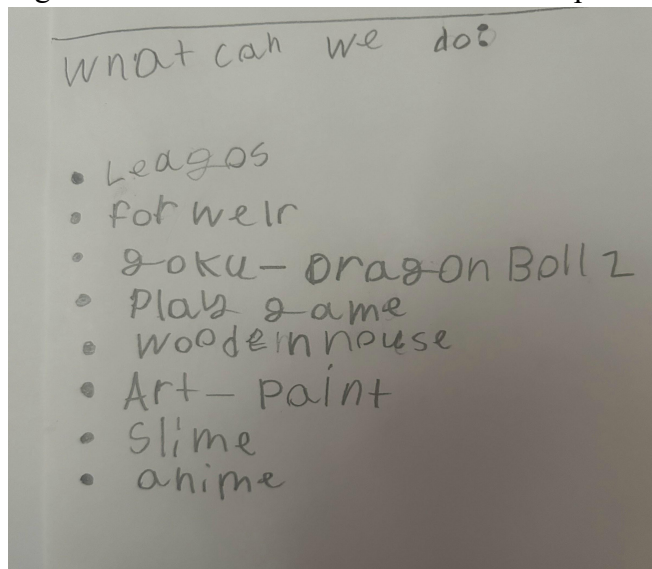 what can we do?
• Leagos
• for welr
• goku - Dragon Boll Z
• Play game
• woodern house
• Art - paint
• Slime
• anime